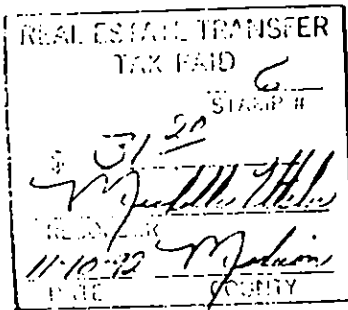 REAL ESTATE TRANSFER
TAX PAID
6
STAMP #
$ 31 20
Michelle Utsler
RECORDER
11-10-92 Madison
DATE COUNTY